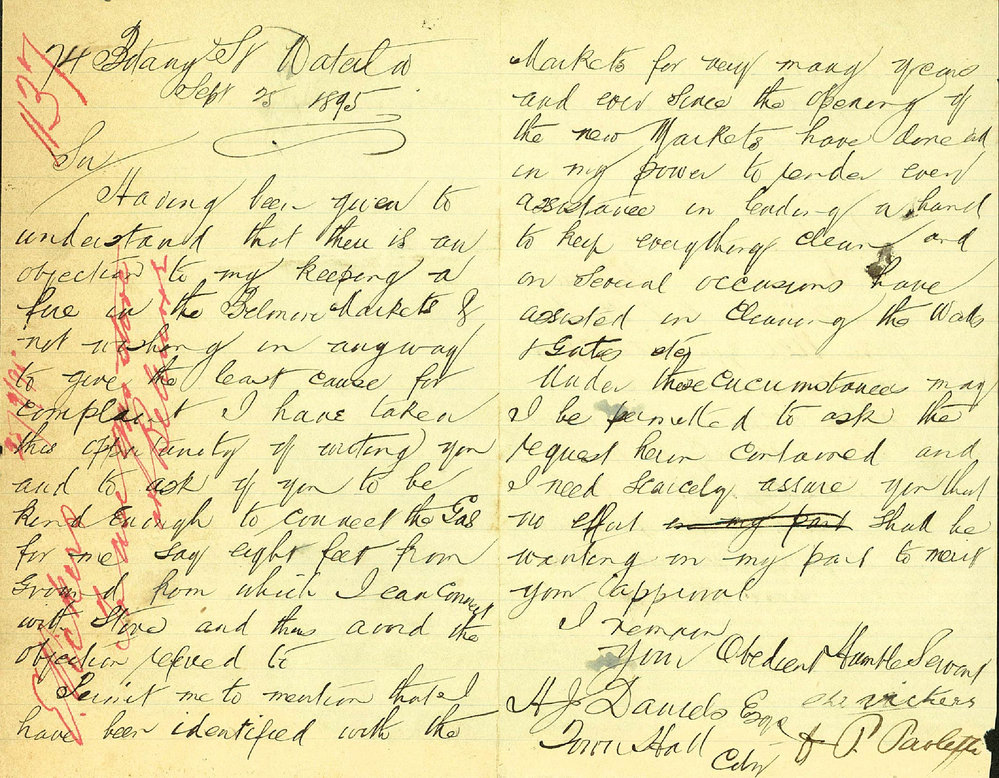 74 Botany St Waterloo
Sept 25 1895
Sir/
Having been given to
understand that there is an
objection to my keeping a
fire in the Belmore Markets &
not wishing in anyway
to give the least cause for
complaint I have taken
this opportunity of writing you
and to ask if you to be
kind enough to connect the Gas
for me say eight feet from
Ground from which I can connect
with Stove and thus avoid the
objection refered to
Permit me to mention that I
have been identified with the
Markets for very many years
and ever since the opening of
the new Markets have done all
in my power to render every
assistance in lending a hand
to keep everything clean and
on several occasions have
assisted in Cleaning the Walls
& Gates etc
Under these circumstances may
I be permitted to ask the
request herin contained and
I need scarcely assure you that
no effort on my part shall be
wanting on my part to merit
your approval
I remain
Your Obedient Humble Servant
Vickers
& P. Paoletti
H J Daniels Esqr
Town Hall
City
1137
E Vickers
Gas Stove
Belmore